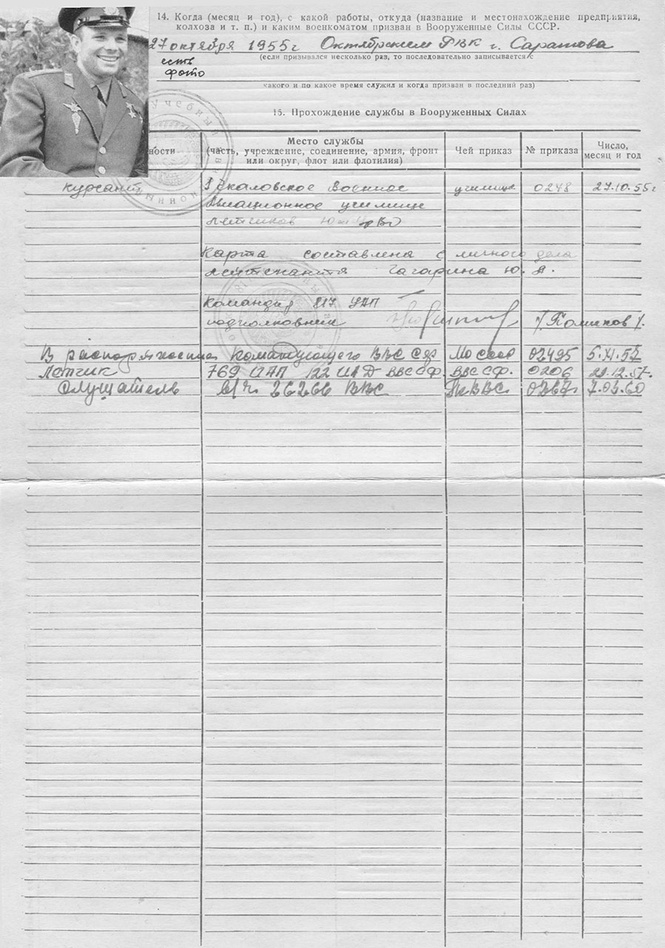 14. Когда (месяц и год), с какой работы, откуда (название и местонахождение предприятия,
колхоза и т. п.) и каким военкоматом призван в Вооруженные Силы СССР.
27 октября 1955г Октябрьским РВК г. Саратова
есть (если призывался несколько раз, то последовательно записывается с
фото
какого и по какое время служил и когда призван в последний раз)
15. Прохождение службы в Вооруженных Силах
ности
Место службы
(часть, учреждение, соединение, армия, фронт
или округ, флот или флотилия)
Чей приказ
№ приказа
Число,
месяц и год
курсант Чкаловское Военное училище 0248 27.10.55г
Авиационное училище
летчиков
Карта составлена с личного дела
лейтенанта Гагарина Ю. А.
Командир УАП
подполковник
В распоряжении командующего ВВС СФ МО СССР 02495 5.XI.57
Летчик 769 ИАП 122 ИАД ВВС СФ. ВВС СФ. 0206 29.12.57.
Слушатель в/ч 26266 ВВС 7.03.60